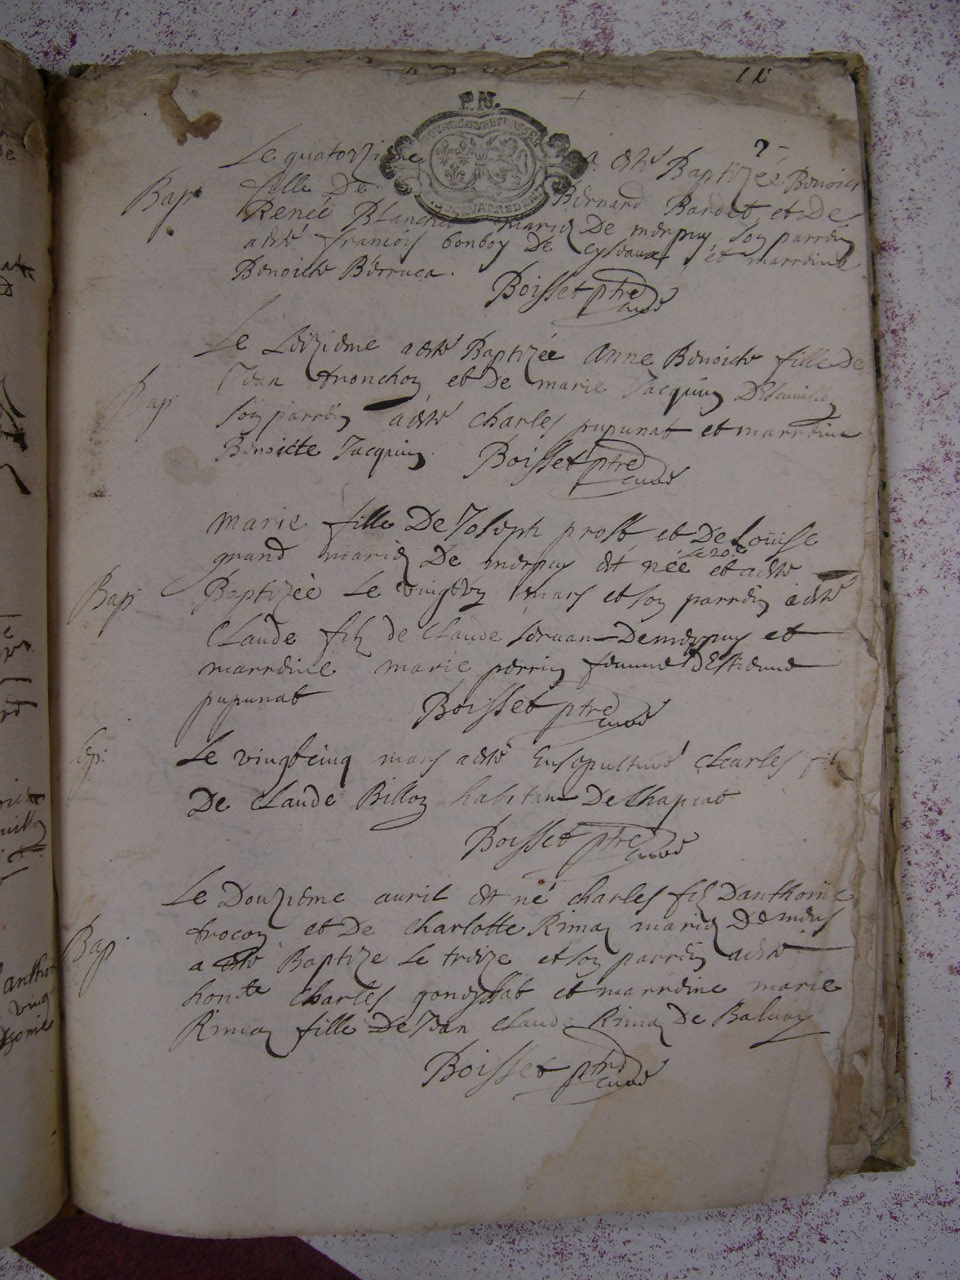 11
P.N.
Le quatorzieme a esté Baptizée Benoiste
Bap fille De Bernard Bardet et De
Renée Blanche mariez De merpuy son parrein
a esté francois bonboy De et marreine
Benoiste Berruca.
Boisset ptre curé
Le seizieme a esté Baptizée Anne Benoiste fille De
Bap Jean tronchon et De marie Jacquin
son parrein a esté charles pupunat et marreine
Benoicte Jacquin. Boisset ptre curé
marie fille De Joseph prost et De Louise
grand mariez De merpuy est née le 20e et a esté
Bap Baptizée Le vingt un mars et son parrein a esté
claude filz de claude De merpuy et
marreine marie perrin femme D'Estienne
pupunat Boisset ptre curé
Sep. Le vingt cinq mars a esté Ensepulturé charles filz
De claude Billon habitant De chapiat
Boisset ptre curé
Le Douzieme avril est né charles filz D'anthoine
trocon et De charlotte Rimaz mariez De
Bap a esté Baptize Le treize et son parrein a esté
hon.te charles et marreine marie
Rimaz fille De Jean claude Rimaz De Balvay
Boisset ptre curé